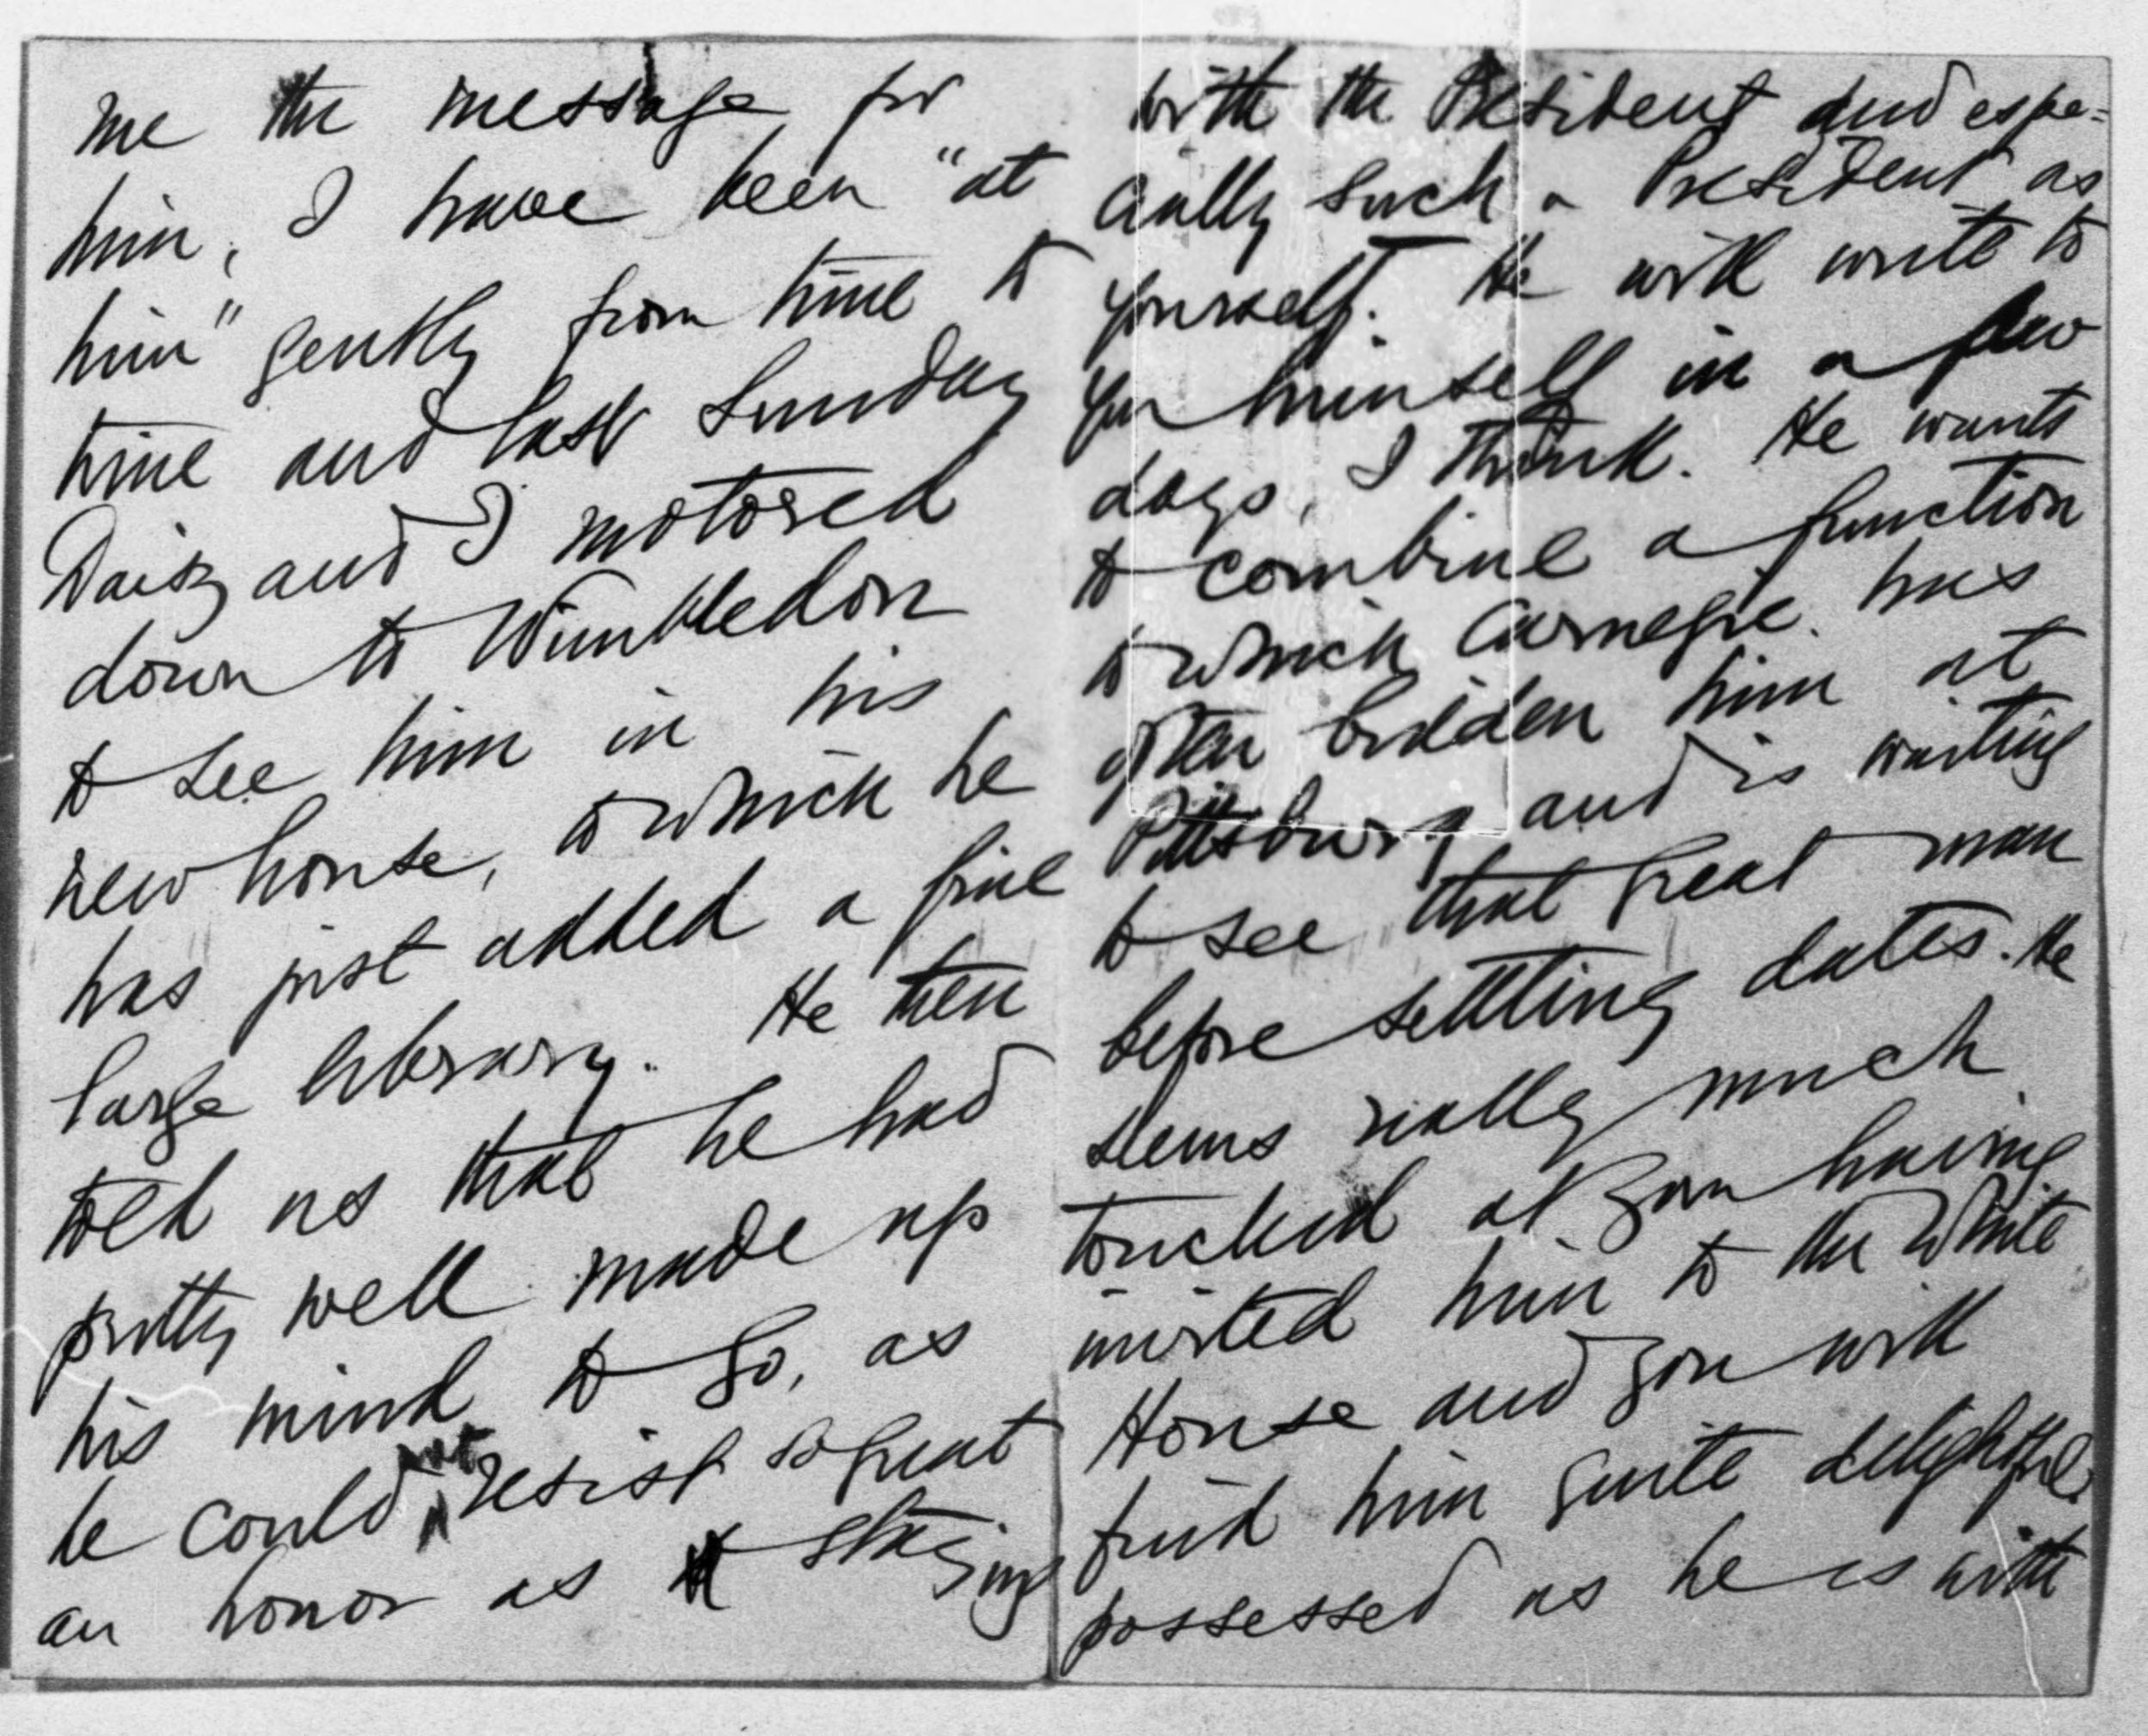 me the message for
him, I have been "at
him" gently from time to
time and last Sunday
Daisy and I motored
down to Wimbledon
to see him in his
new house, to which he
has just added a fine
large library. He then
told us that he had
pretty well made up
his mind to go, as
he could not resist so great
an honor as staying
with the President and espe=
cially such a President as
yourself. He will write to
you himself in a few
days, I think. He wants
to combine a function
to which Carnegie has
often bidden him at
Pittsburg and is waiting
to see that great man
before settling dates. He
seems really much
touched at your having
invited him to the White
House and you will
find him quite delightful
possessed as he is with